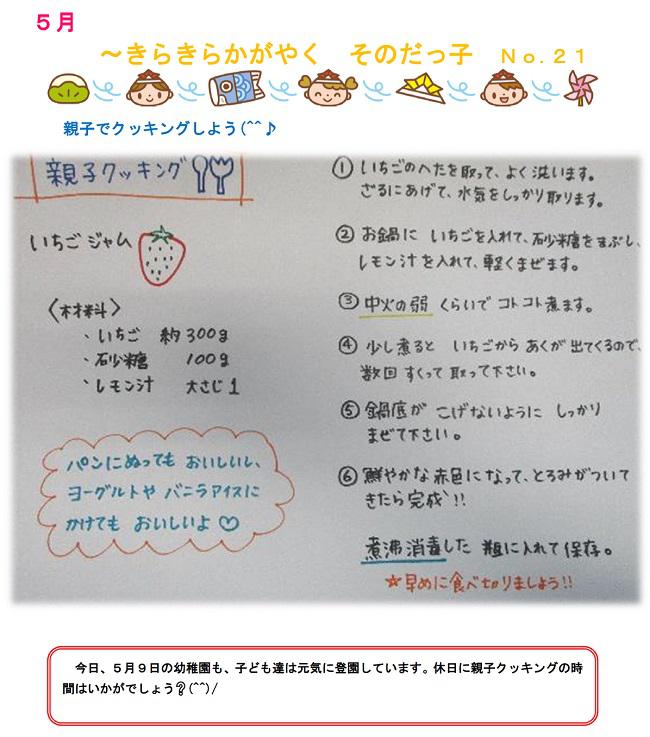 5月
～きらきらかがやく　そのだっ子　No.21
親子でクッキングしよう(^^♪
親子クッキング
いちごジャム
〈材料〉
・いちご　約300g
・砂糖　100g
・レモン汁　大さじ1
パンにぬっても おいしいし、
ヨーグルトや バニラアイスに
かけても おいしいよ♡
① いちごのへたを取って、よく洗います。
ざるにあげて、水気をしっかり取ります。
② お鍋に いちごを入れて、砂糖をまぶし、
レモン汁を入れて、軽くまぜます。
③ 中火の弱 くらいで コトコト煮ます。
④ 少し煮ると いちごから あくが出てくるので、
数回 すくって 取って下さい。
⑤ 鍋底が こげないように しっかり
まぜて下さい。
⑥ 鮮やかな赤色になって、とろみがついて
きたら完成!!
煮沸消毒した 瓶に入れて保存。
☆早めに食べ切りましょう!!
今日、5月9日の幼稚園も、子ども達は元気に登園しています。休日に親子クッキングの時
間はいかがでしょう?(^^)/